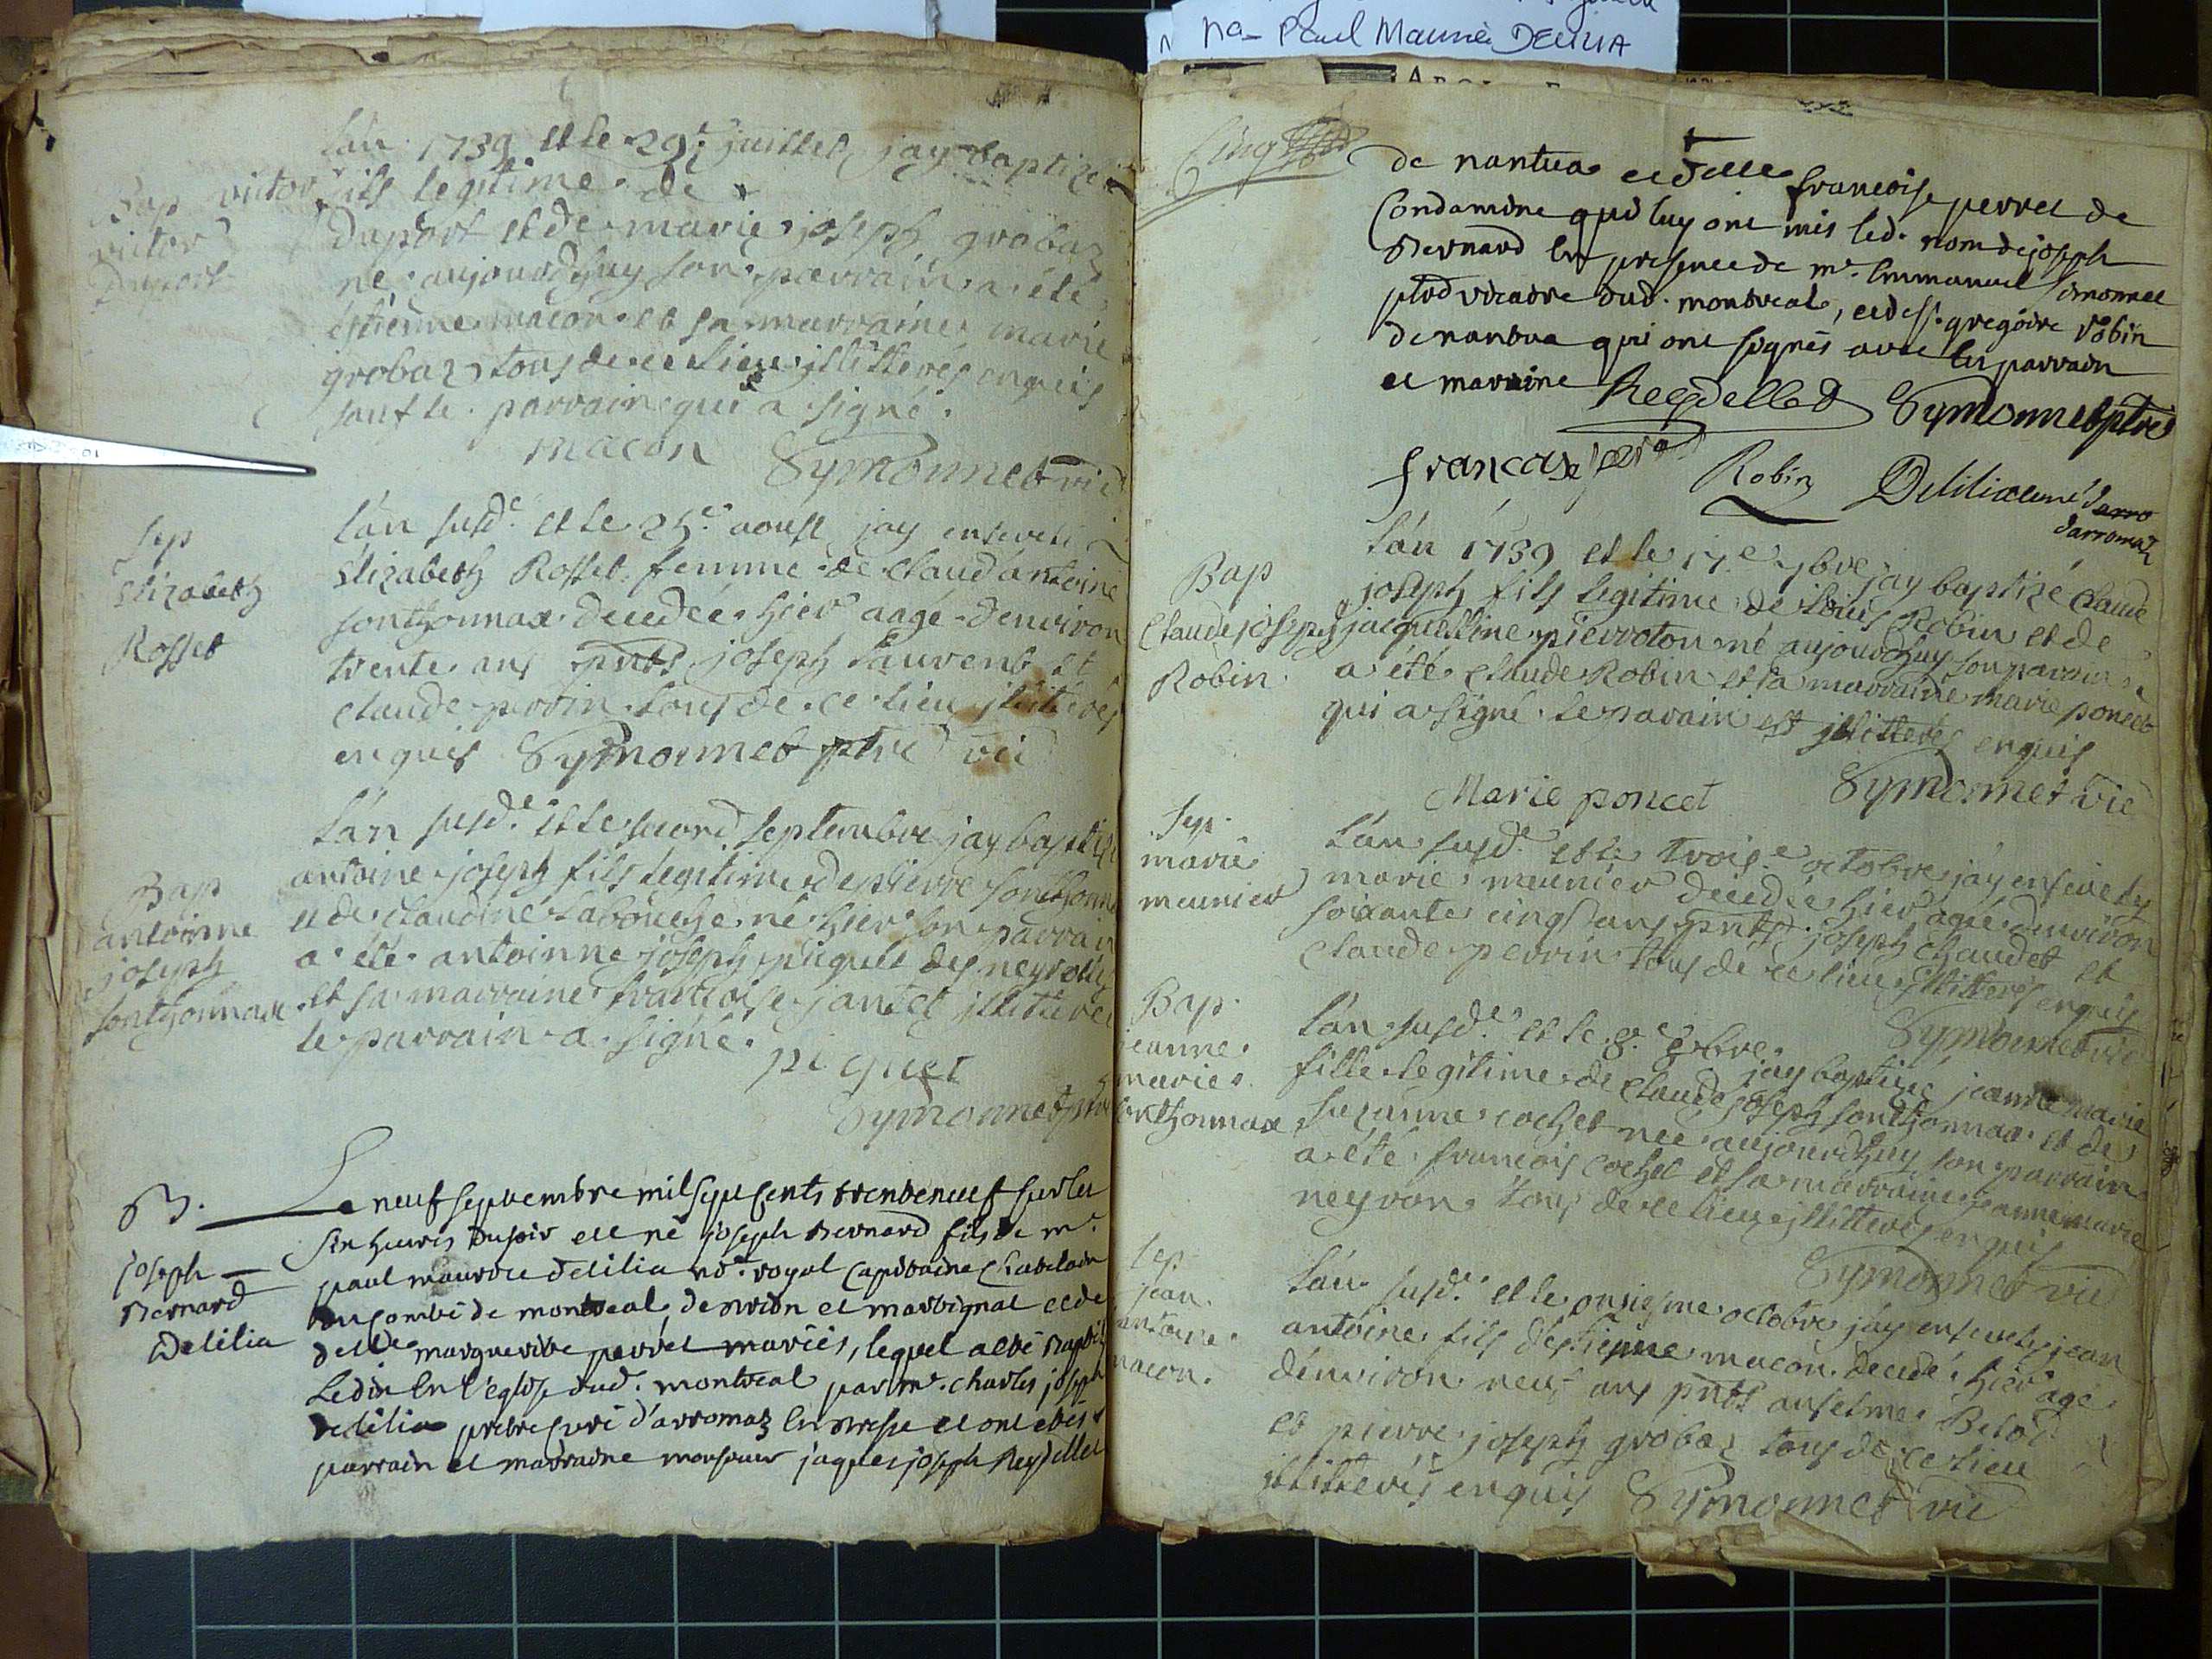 na Paul Maurice DELILIA
L'an 1739 et le 29e juillet jay baptizé
victor fils legitime de
duport et de marie joseph grobaz
né aujourdhuy son parrain a été
estienne macon et sa marraine marie
grobaz tous de ce lieu illitterés enquis
sauf le parrain qui a signé.
macon Symonnet vic
Bap
victor
Duport
L'an susd.e et le 25.e aoust jay enseveli
Elizabeth Rosset femme de Claud antoine
sonthonnax decedée hier aagé denviron
trente ans pnts joseph Laurent et
claude perrin tous de ce lieu illiterés
enquis Symonnet ptre vic
Sep
Elizabeth
Rosset
L'an susd.e et le second septembre jay baptizé
antoine joseph fils legitime de pierre sonthonnax
et de claudine Labouche né hier son parrain
a été antoinne joseph piquet des neyrolles
et sa marraine francoise jantet illiterée
le parrain a signé.
piquet
Symonnet ptre
Bap
antoinne
joseph
sonthonnax
Le neuf septembre mil sept cents trente neuf sur les
six heures du soir est né joseph Bernard fils de mr.
paul maurice delilia no.re royal capitaine chatelain
du comté de montreal, de brion et martignat et de
delle marguerite perret mariés, lequel a eté baptisé
Ledit en l'eglise dud. montreal par mr. charles joseph
delilia pretre curé d'arromaz en bresse et ont etés
parrain et marraine monsieur jaques joseph Reydellet
B.
joseph
Bernard
Delilia
Cinq
de nantua et delle francoise perret de
Condamine qui luy ont mis led. nom de joseph
Bernard en presence de mr. Emmanuel simonnet
ptre vicaire dud. montreal, et de sr. gregoire Robin
de nantua qui ont signés avec les parrain
et marraine Reydellet Symonnet ptre
francoise perret Robin Delilia curé
darromaz
L'an 1739 et le 17.e 7bre jay baptizé claude
joseph fils legitime de louis Robin et de
jacqueline pierroton né aujourdhuy son parrain
a été claude Robin et sa marraine marie poncet
qui a signé le parain est illitteré enquis
Marie poncet Symonnet vic
Bap
Claude joseph
Robin
L'an susd.e et le trois.e octobre jay ensevely
marie meunier decedée hier agée denviron
soixante cinq ans pnts joseph chaudet et
claude perrin tous de ce lieu illitterés enquis
Symonnet vic
Sep.
marie
meunier
L'an susd.e et le 8.e 8bre jay baptizé jeanne marie
fille legitime de claude joseph sonthonnax et de
suzanne cochet née aujourdhuy son parrain
a été francois cochet et sa marraine jeanne marie
neyron tous de ce lieu illitterés enquis
Symonnet vic
Bap.
jeanne
marie
sonthonnax
L'an susd.e et le onziesme octobre jay ensevely jean
antoine fils d'estienne macon decedé hier agé
denviron neuf ans pnts anselme Belod
et pierre joseph grobaz tous de ce lieu
illitterés enquis Symonnet vic
Sep
jean
antoine
macon.